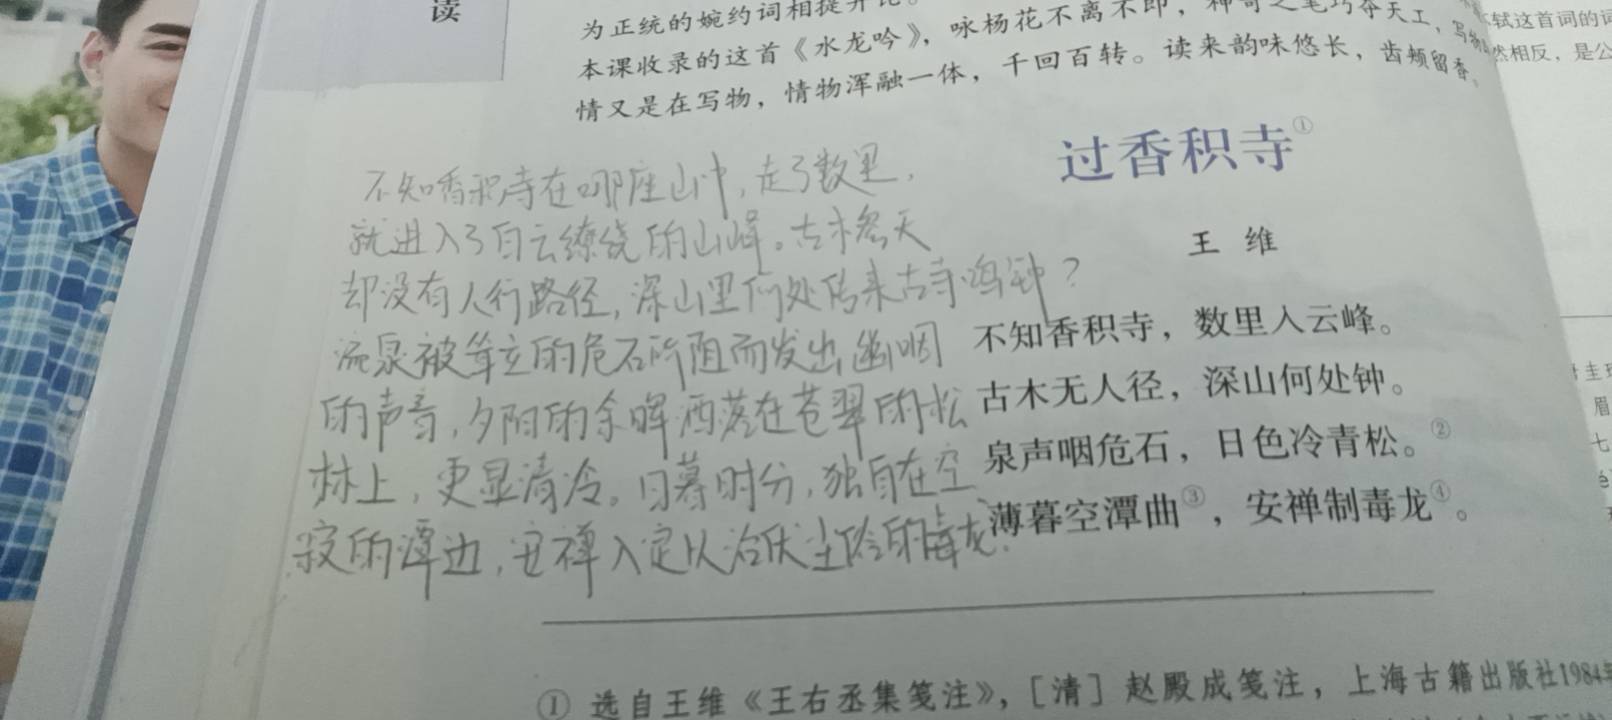 读
为正统的婉约词相提并论。
本课收录的这首《水龙吟》，咏杨花不离不即，神奇之笔巧夺天工，写物
情又是在写物，情物浑融一体，千回百转。读来韵味悠长，齿颊留香。
轼这首词的词
然相反，是公
过香积寺①
王 维
不知香积寺在哪座山中，走了数里，
就进入了白云缭绕的山峰。古木参天
却没有人行路径，深山里何处传来古寺鸣钟？
流泉被耸立的危石所阻而发出幽咽
的声音，夕阳的余晖洒落在苍翠的松
林上，更显清冷。日暮时分，独自在空
寂的潭边，安禅入定以治伏尘俗的毒龙.
不知香积寺，数里入云峰。
古木无人径，深山何处钟。
泉声咽危石，日色冷青松。②
薄暮空潭曲③，安禅制毒龙④。
眉
七
① 选自王维《王右丞集笺注》，［清］赵殿成笺注，上海古籍出版社1984年